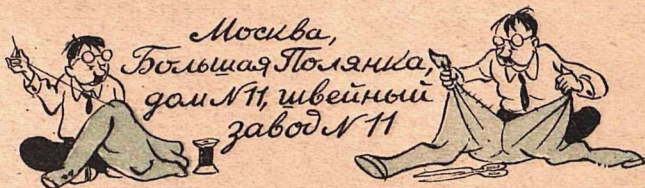 Москва,
Большая Полянка,
дом N 11, швейный
завод N 11